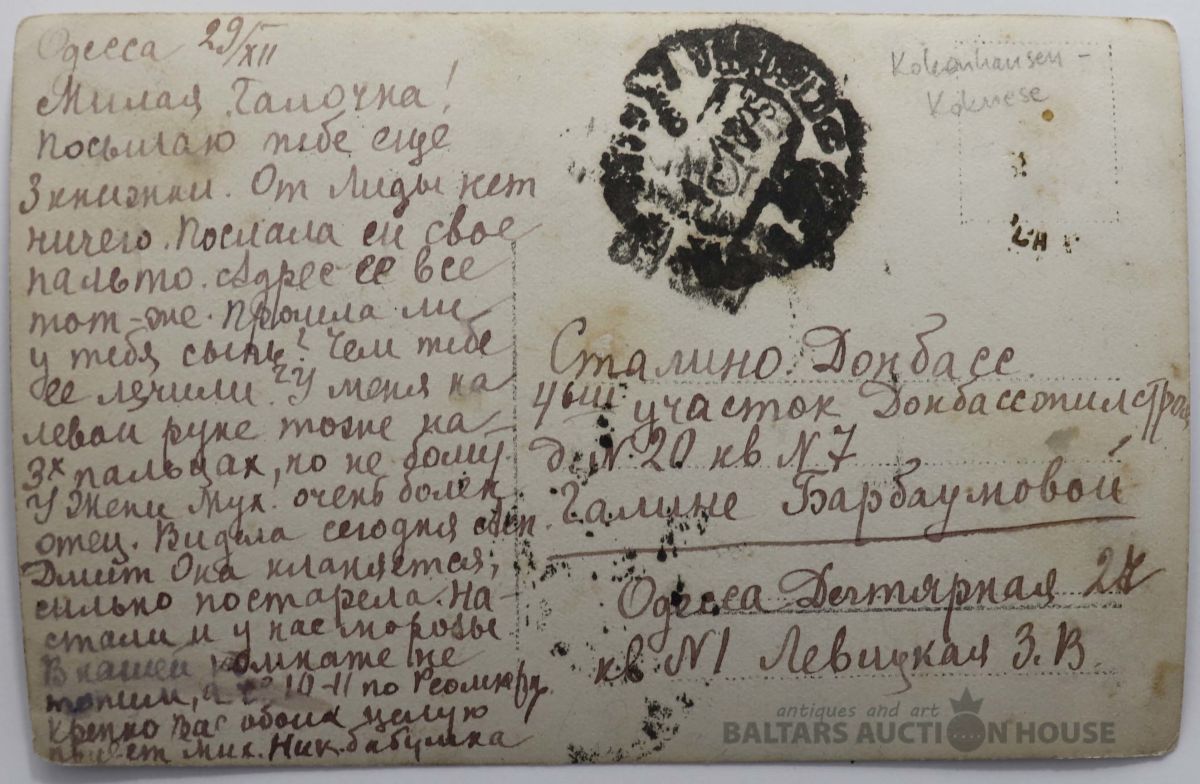 Одесса 29/XII
Милая Галочка!
Посылаю тебе еще
3 книжки. От Лиды нет
ничего. Послала ей свое
пальто. Адрес ее все
тот-же. Прошла ли
у тебя сыпь? Чем тебе
ее лечили? У меня на
левой руке тоже на
3х пальцах, но не болит
У Жени Мук. очень болен
отец. Видела сегодня
Дмит Она кланяется,
сильно постарела. На-
стали и у нас морозы
В нашей комнате не
топим, а t° 10-11 по Реомюру.
Крепко Вас обоих целую
Привет Мих. Ник. бабушка
Kokenhausen -
Koknese
Сталино. Донбасс.
4ый участок Донбассжилстрой
д. N 20 кв N 7
Галине Барбаумовой
Одесса Дегтярная
кв N1 Левицкая З.В.
antiques and art
BALTARS AUCTION HOUSE